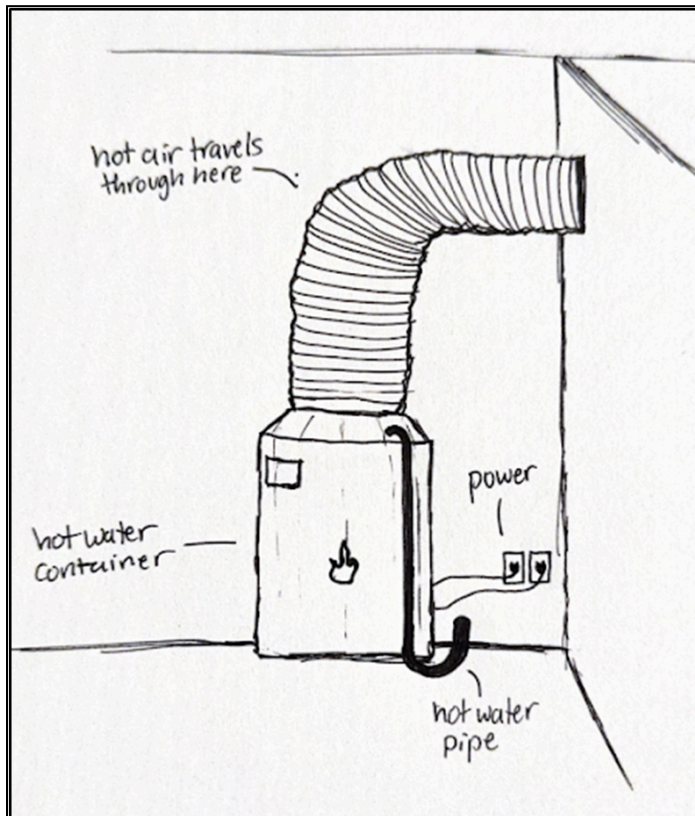 hot air travels
through here
power
hot water
container
hot water
pipe